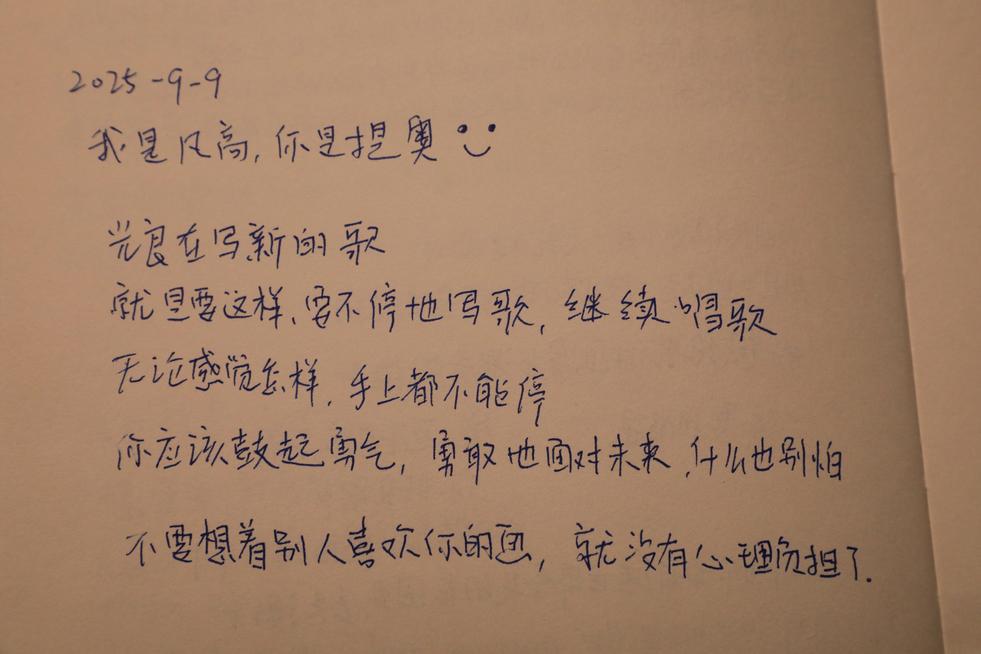 2025-9-9
我是凡高,你是提奥
光良在写新的歌
就是要这样、要不停地写歌,继续唱歌
无论感觉怎样,手上都不能停
你应该鼓起勇气,勇敢地面对未来,什么也别怕
不要想着别人喜欢你的画,就没有心理负担了.